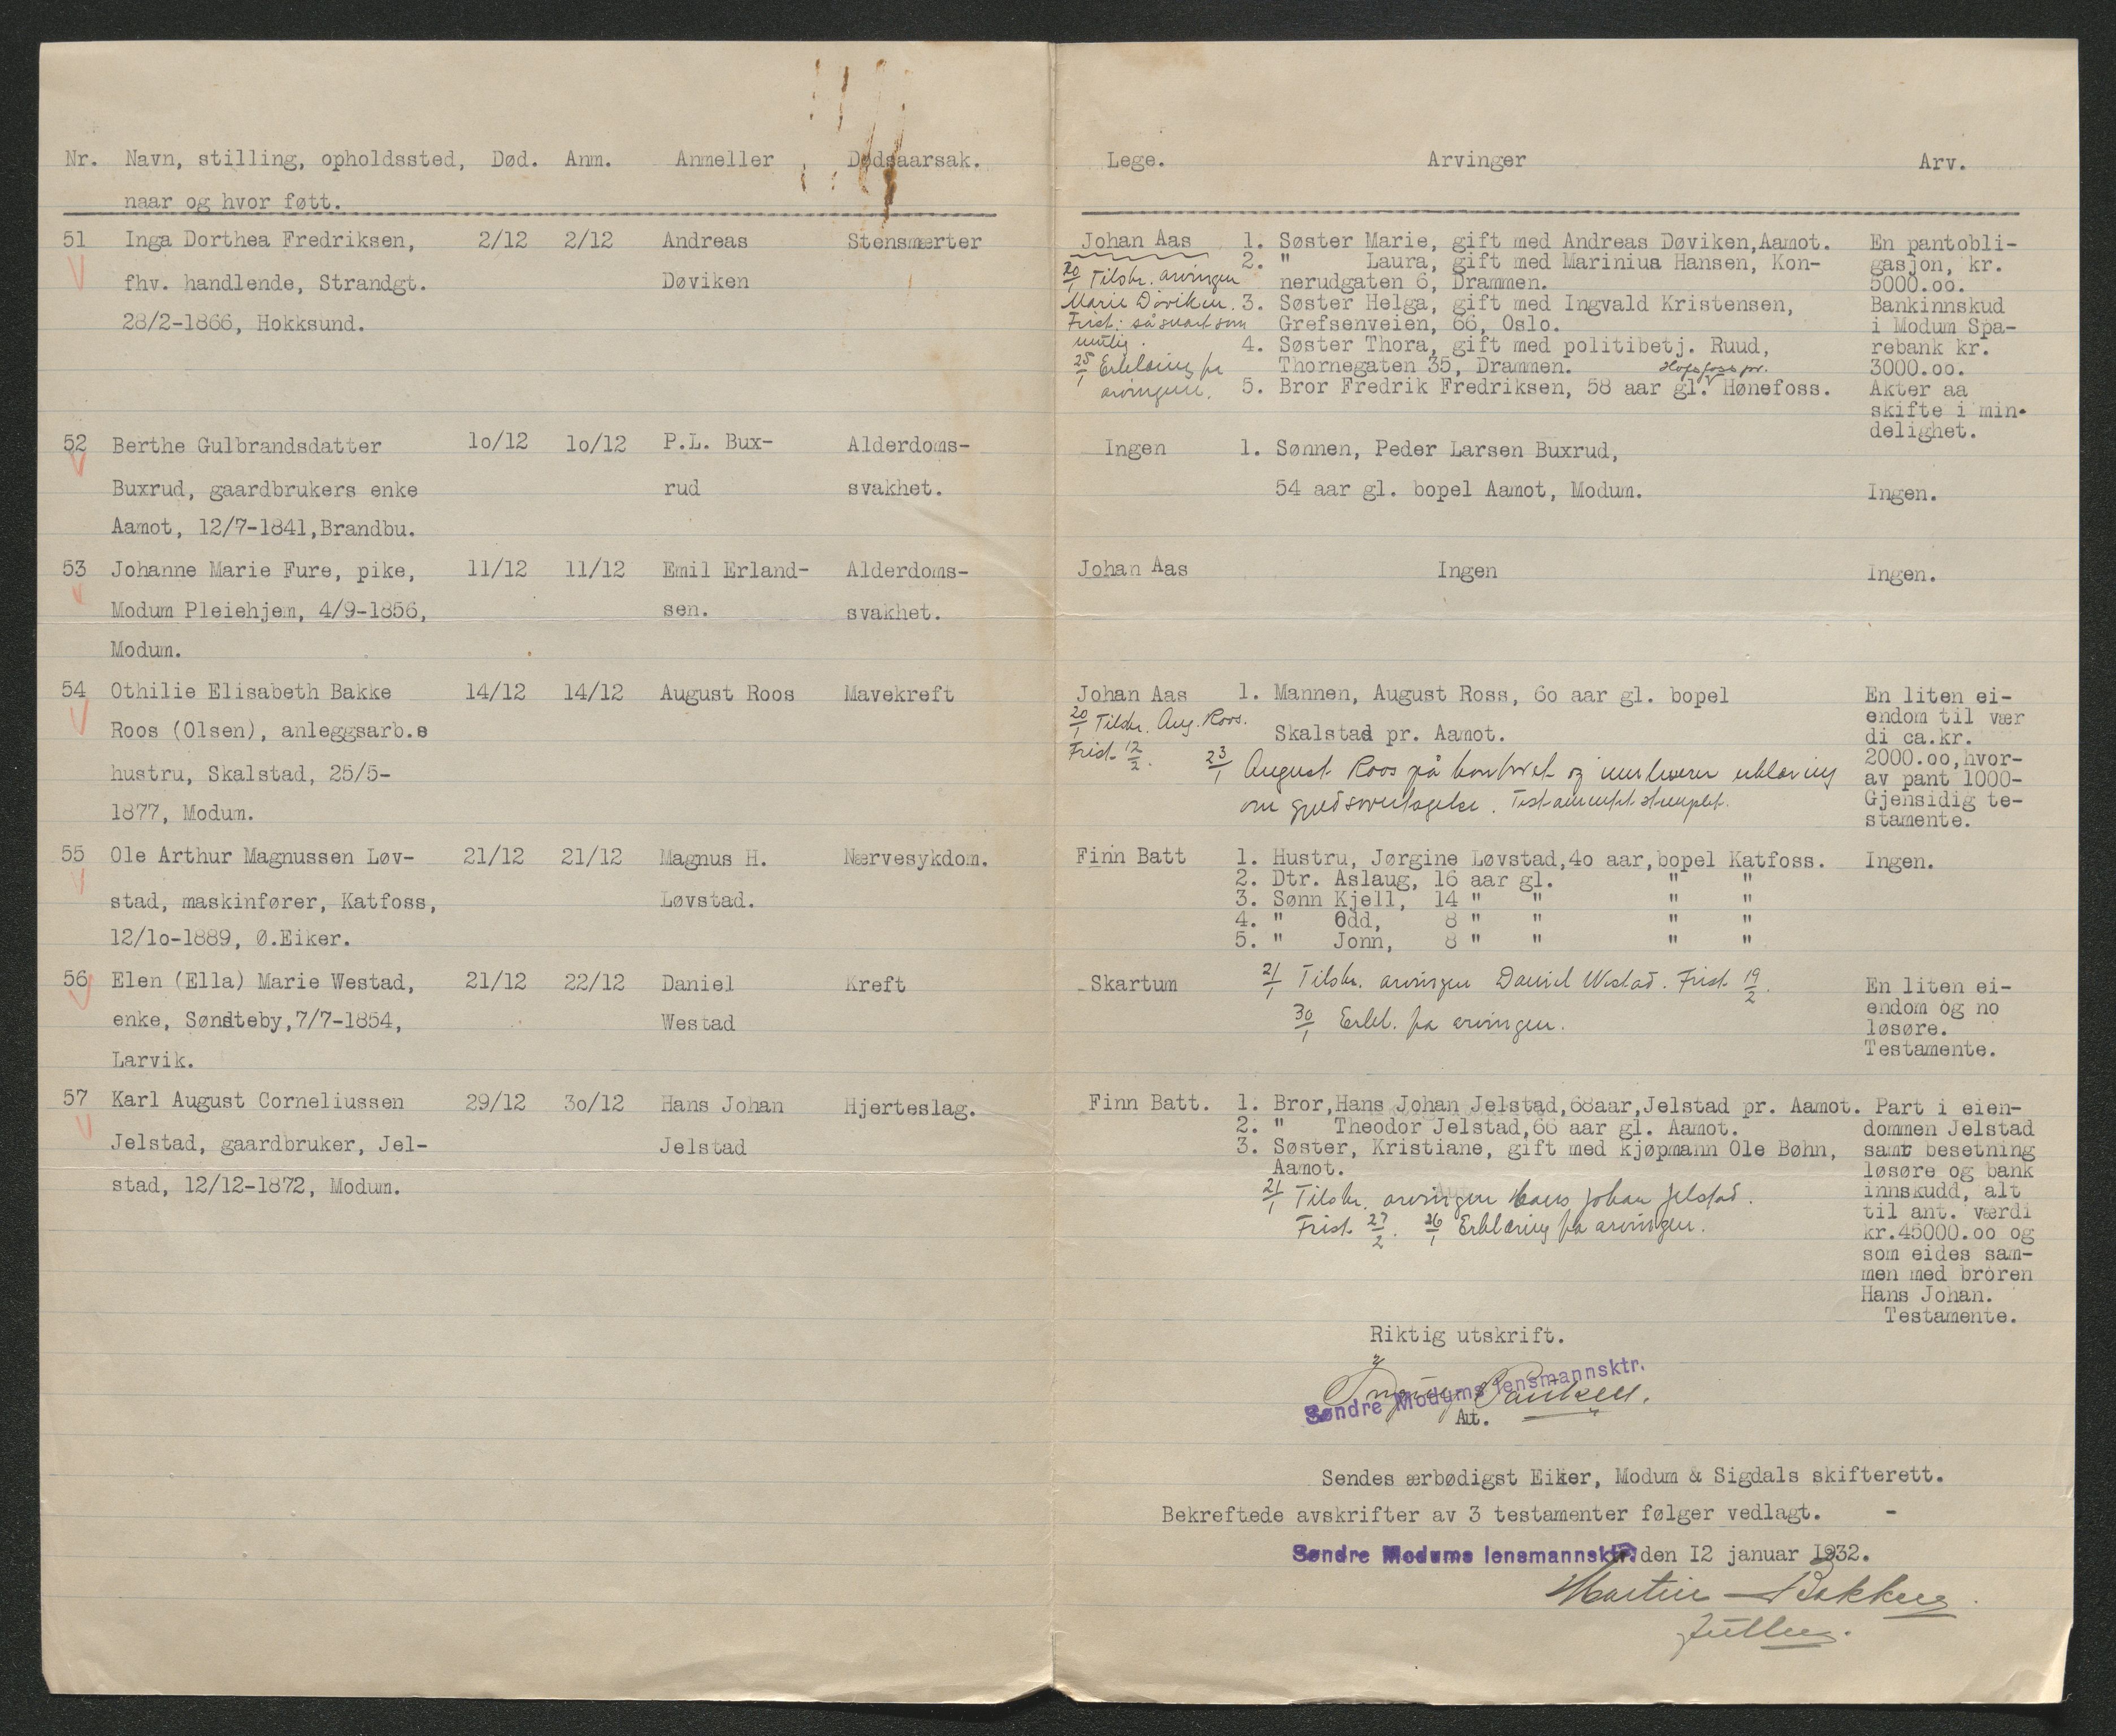 Nr. Navn, stilling, opholdssted, Død. Anm. Anmeller Dødsaarsak.
naar og hvor føtt.
51 Inga Dorthea Fredriksen, 2/12 2/12 Andreas Stensmerter
fhv. handlende, Strandgt. Døviken
28/2-1866, Hokksund.
52 Berthe Gulbrandsdatter 10/12 10/12 P.L. Bux- Alderdoms-
Buxrud, gaardbrukers enke rud svakhet.
Aamot, 12/7-1841, Brandbu.
53 Johanne Marie Fure, pike, 11/12 11/12 Emil Erland- Alderdoms-
Modum Pleiehjem, 4/9-1856, sen. svakhet.
Modum.
54 Othilie Elisabeth Bakke 14/12 14/12 August Roos Mavekreft
Roos (Olsen), anleggsarb.s
hustru, Skalstad, 25/5-
1877, Modum.
55 Ole Arthur Magnussen Løv- 21/12 21/12 Magnus H. Nærvesykdom.
stad, maskinfører, Katfoss, Løvstad.
12/10-1889, Ø.Eiker.
56 Elen (Ella) Marie Westad, 21/12 22/12 Daniel Kreft
enke, Sønsteby, 7/7-1854, Westad
Larvik.
57 Karl August Corneliussen 29/12 30/12 Hans Johan Hjerteslag.
Jelstad, gaardbruker, Jel- Jelstad
stad, 12/12-1872, Modum.
Lege. Arvinger Arv.
Johan Aas 1. Søster Marie, gift med Andreas Døviken, Aamot. En pantobli-
2. " Laura, gift med Marinius Hansen, Kon- gasjon, kr.
20/1 Tilskr. arvingen nerudgaten 6, Drammen. 5000.00.
Marie Døviken. 3. Søster Helga, gift med Ingvald Kristensen, Bankinnskud
Frist: så snart som Grefsenveien, 66, Oslo. i Modum Spa-
mulig. 4. Søster Thora, gift med politibetj. Ruud, rebank kr.
25/1 Erklæring fra Thornegaten 35, Drammen. Hofsfoss pr. 3000.00.
arvingene. 5. Bror Fredrik Fredriksen, 58 aar gl. Hønefoss. Akter aa
skifte i min-
delighet.
Ingen 1. Sønnen, Peder Larsen Buxrud,
54 aar gl. bopel Aamot, Modum. Ingen.
Johan Aas Ingen Ingen.
Johan Aas 1. Mannen, August Ross, 60 aar gl. bopel En liten ei-
20/1 Tilskr. Aug. Roos. endom til vær
Skalstad pr. Aamot. di ca.kr.
Frist 12/2. 2000.00, hvor-
23/1 August Roos på kontoret og erklæring av pant 1000-
om gjeldsovertagelse. Testamentet stemplet. Gjensidig te-
stamente.
Finn Batt 1. Hustru, Jørgine Løvstad, 40 aar, bopel Katfoss. Ingen.
2. Dtr. Aslaug, 16 aar gl. " "
3. Sønn Kjell, 14 " " " "
4. " Odd, 8 " " " "
5. " Jonn, 8 " " " "
Skartum 21/1 Tilskr. arvingen Daniel Westad. Frist 19/2. En liten ei-
30/1 Erkl. fra arvingen. endom og no
løsøre.
Testamente.
Finn Batt. 1. Bror, Hans Johan Jelstad, 68aar, Jelstad pr. Aamot. Part i eien-
2. " Theodor Jelstad, 66 aar gl. Aamot. dommen Jelstad
3. Søster, Kristiane, gift med kjøpmann Ole Bøhn, samt besetning
Aamot. løsøre og bank
21/1 Tilskr. arvingen Hans Johan Jelstad. innskudd, alt
Frist 27/2. 26/1 Erklæring fra arvingen. til ant. værdi
kr.45000.00 og
som eides sam-
men med broren
Hans Johan.
Testamente.
Riktig utskrift.
Søndre Modums lensmannsktr.
Aut.
Sendes ærbødigst Eiker, Modum & Sigdals skifterett.
Bekreftede avskrifter av 3 testamenter følger vedlagt. -
Søndre Modums lensmannsktr. den 12 januar 1932.
Martin Bakken